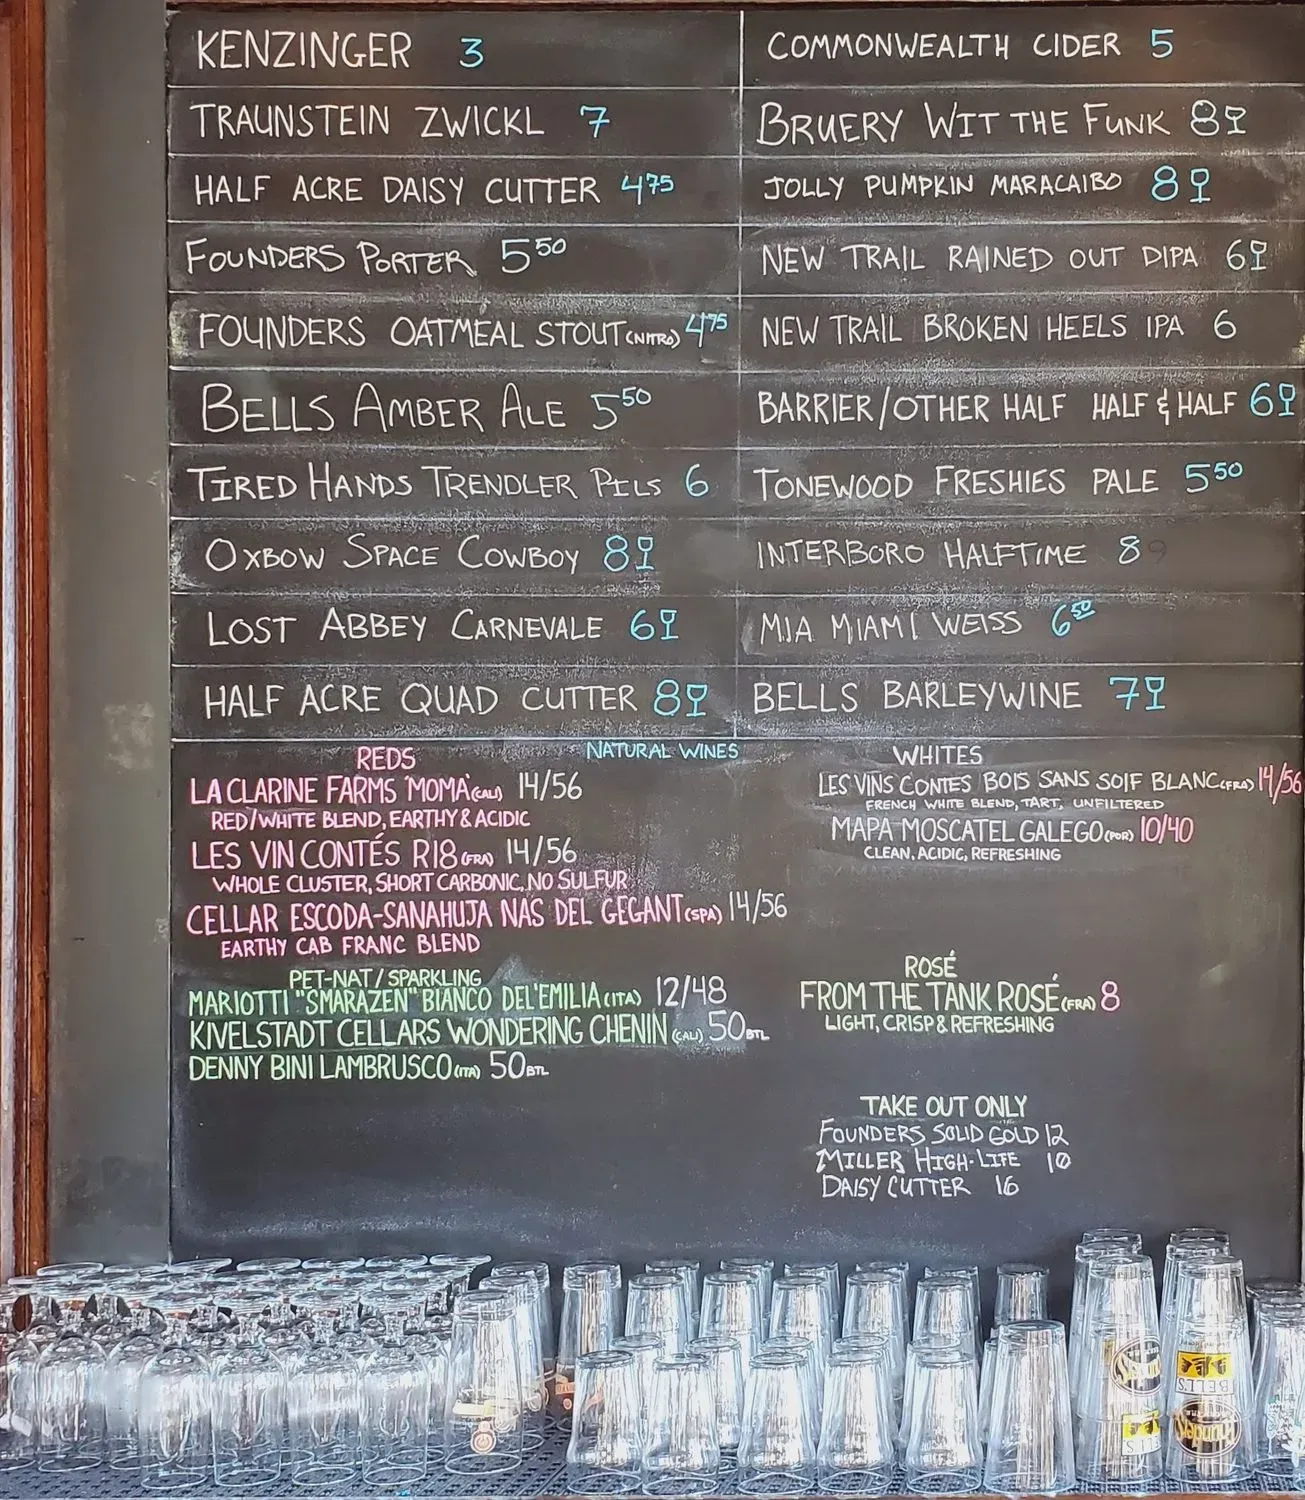 KENZINGER 3
TRAUNSTEIN ZWICKL 7
HALF ACRE DAISY CUTTER 4 75
FOUNDERS PORTER 5 50
FOUNDERS OATMEAL STOUT (NITRO) 4 75
BELLS AMBER ALE 5 50
TIRED HANDS TRENDLER PILS 6
OXBOW SPACE COWBOY 8
LOST ABBEY CARNEVALE 6
HALF ACRE QUAD CUTTER 8
COMMONWEALTH CIDER 5
BRUERY WIT THE FUNK 8
JOLLY PUMPKIN MARACAIBO 8
NEW TRAIL RAINED OUT DIPA 6
NEW TRAIL BROKEN HEELS IPA 6
BARRIER/OTHER HALF HALF & HALF 6
TONEWOOD FRESHIES PALE 5 50
INTERBORO HALFTIME 8
MIA MIAMI WEISS 6 50
BELLS BARLEYWINE 7
NATURAL WINES
REDS
LA CLARINE FARMS 'MOMA' (CALI) 14/56
RED/WHITE BLEND, EARTHY & ACIDIC
LES VIN CONTÉS R18 (FRA) 14/56
WHOLE CLUSTER, SHORT CARBONIC, NO SULFUR
CELLAR ESCODA-SANAHUJA NAS DEL GEGANT (SPA) 14/56
EARTHY CAB FRANC BLEND
PET-NAT / SPARKLING
MARIOTTI "SMARAZEN" BIANCO DEL'EMILIA (ITA) 12/48
KIVELSTADT CELLARS WONDERING CHENIN (CALI) 50 BTL
DENNY BINI LAMBRUSCO (ITA) 50 BTL
WHITES
LES VINS CONTES BOIS SANS SOIF BLANC (FRA) 14/56
FRENCH WHITE BLEND, TART, UNFILTERED
MAPA MOSCATEL GALEGO (POR) 10/40
CLEAN, ACIDIC, REFRESHING
ROSÉ
FROM THE TANK ROSÉ (FRA) 8
LIGHT, CRISP & REFRESHING
TAKE OUT ONLY
FOUNDERS SOLID GOLD 12
MILLER HIGH-LIFE 10
DAISY CUTTER 16
Founders
BELL'S
BELL'S
Founders